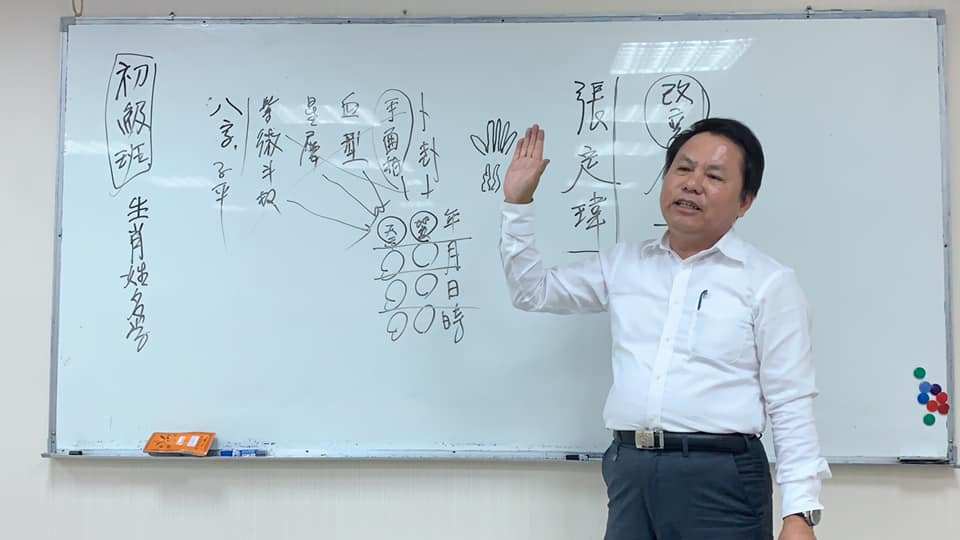 改
張定瑋
卜卦
手面相
血型
星座
紫微斗數
八字.子平
年
月
日
時
初級班
生肖姓名學